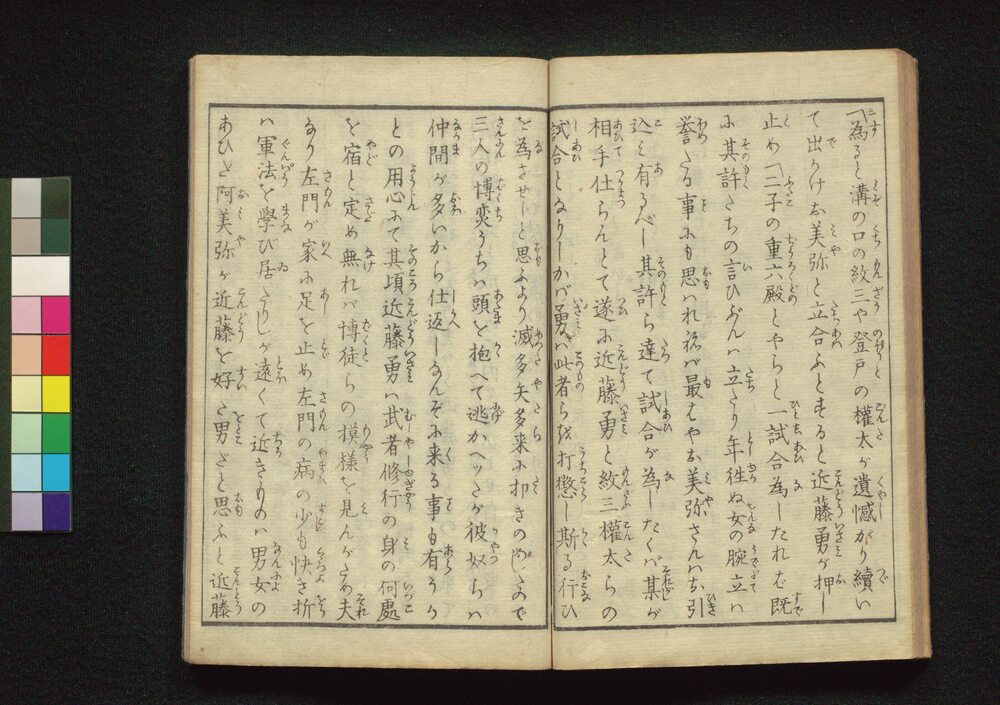 為ると溝の口の紋三や登戸の權太が遺憾がり續い
て出かけお美弥と立合ふとすると近藤勇が押し
止め「二子の重六殿とやらと一試合為したれば既
に其許たちの言ひぶんハ立たり年徃ぬ女の腕立ハ
誉たる事にも思ハれ祢バ最はやお美弥さんハお引
込と有るべし其許ら達て試合が為したくバ某が
相手仕らんとて遂に近藤勇と紋三權太らの
試合となりしかバ勇ハ此者らを打懲し斯る行ひ
を為させじと思ふより滅多矢多来に叩きのめしたので
三人の博奕うちハ頭を抱へて逃かヘッたが彼奴らハ
仲間が多いから仕返しなんぞに来る事も有うか
との用心にて其頃近藤勇ハ武者修行の身の何處
を宿と定め無れバ博徒らの摸様を見んがため夫
なり左門が家に足を止め左門の病の少も快き折
ハ軍法を學び居たりしが遠くて近きものハ男女の
あひだ阿美弥が近藤を好た男だと思ふと近藤